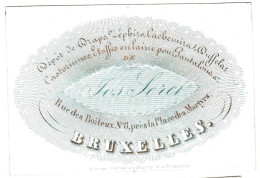 Dépôt de Draps, Zéphirs, Cachemires, Wefflets
Castorines, Etoffes en laine pour Pantalons,
DE
Jos. Soret
Rue des Boiteux, N° 8, près la Place des Martyrs,
BRUXELLES.